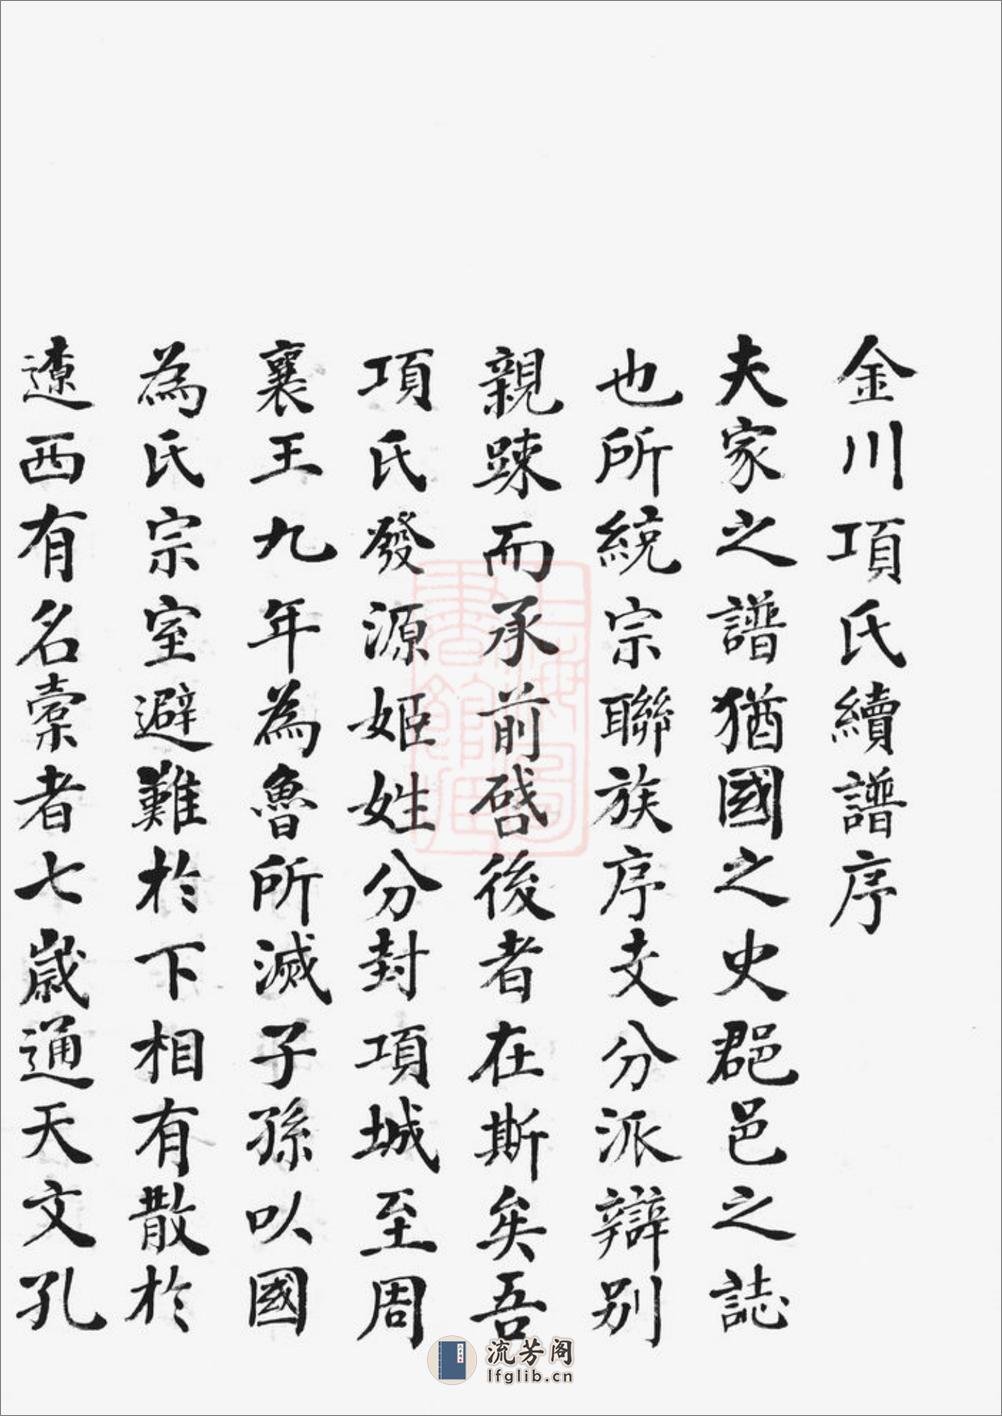 金川項氏續譜序
夫家之譜猶國之史郡邑之誌
也所統宗聯族序支分派辯別
親踈而承前啓後者在斯矣吾
項氏發源姬姓分封項城至周
襄王九年為魯所滅子孫以國
為氏宗室避難於下相有散於
遼西有名橐者七歲通天文孔
上海圖書館藏
流芳阁
lfglib.cn